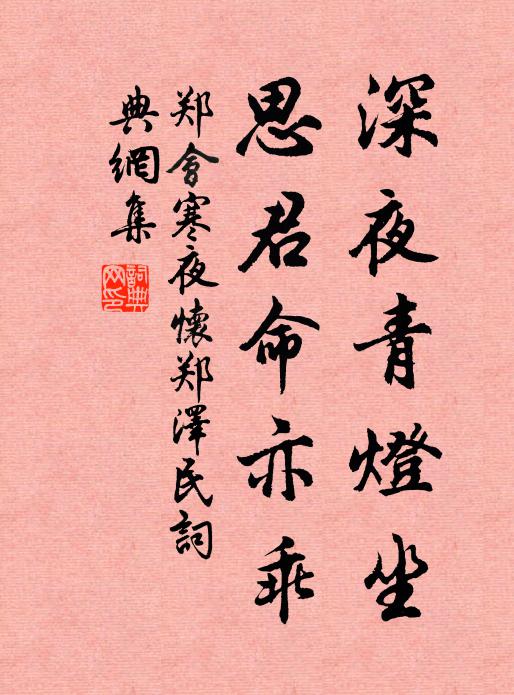 深夜青燈坐
思君命亦乖
郑會寒夜懷郑澤民詞
典網集
詞典
网印